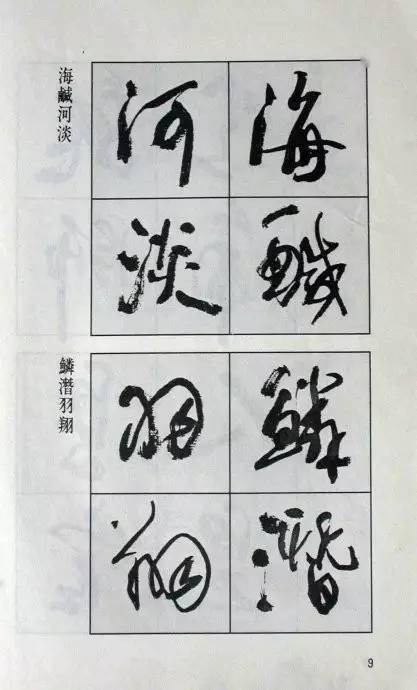 海鹹
河淡
海鹹河淡
鱗潛
羽翔
鱗潛羽翔
9